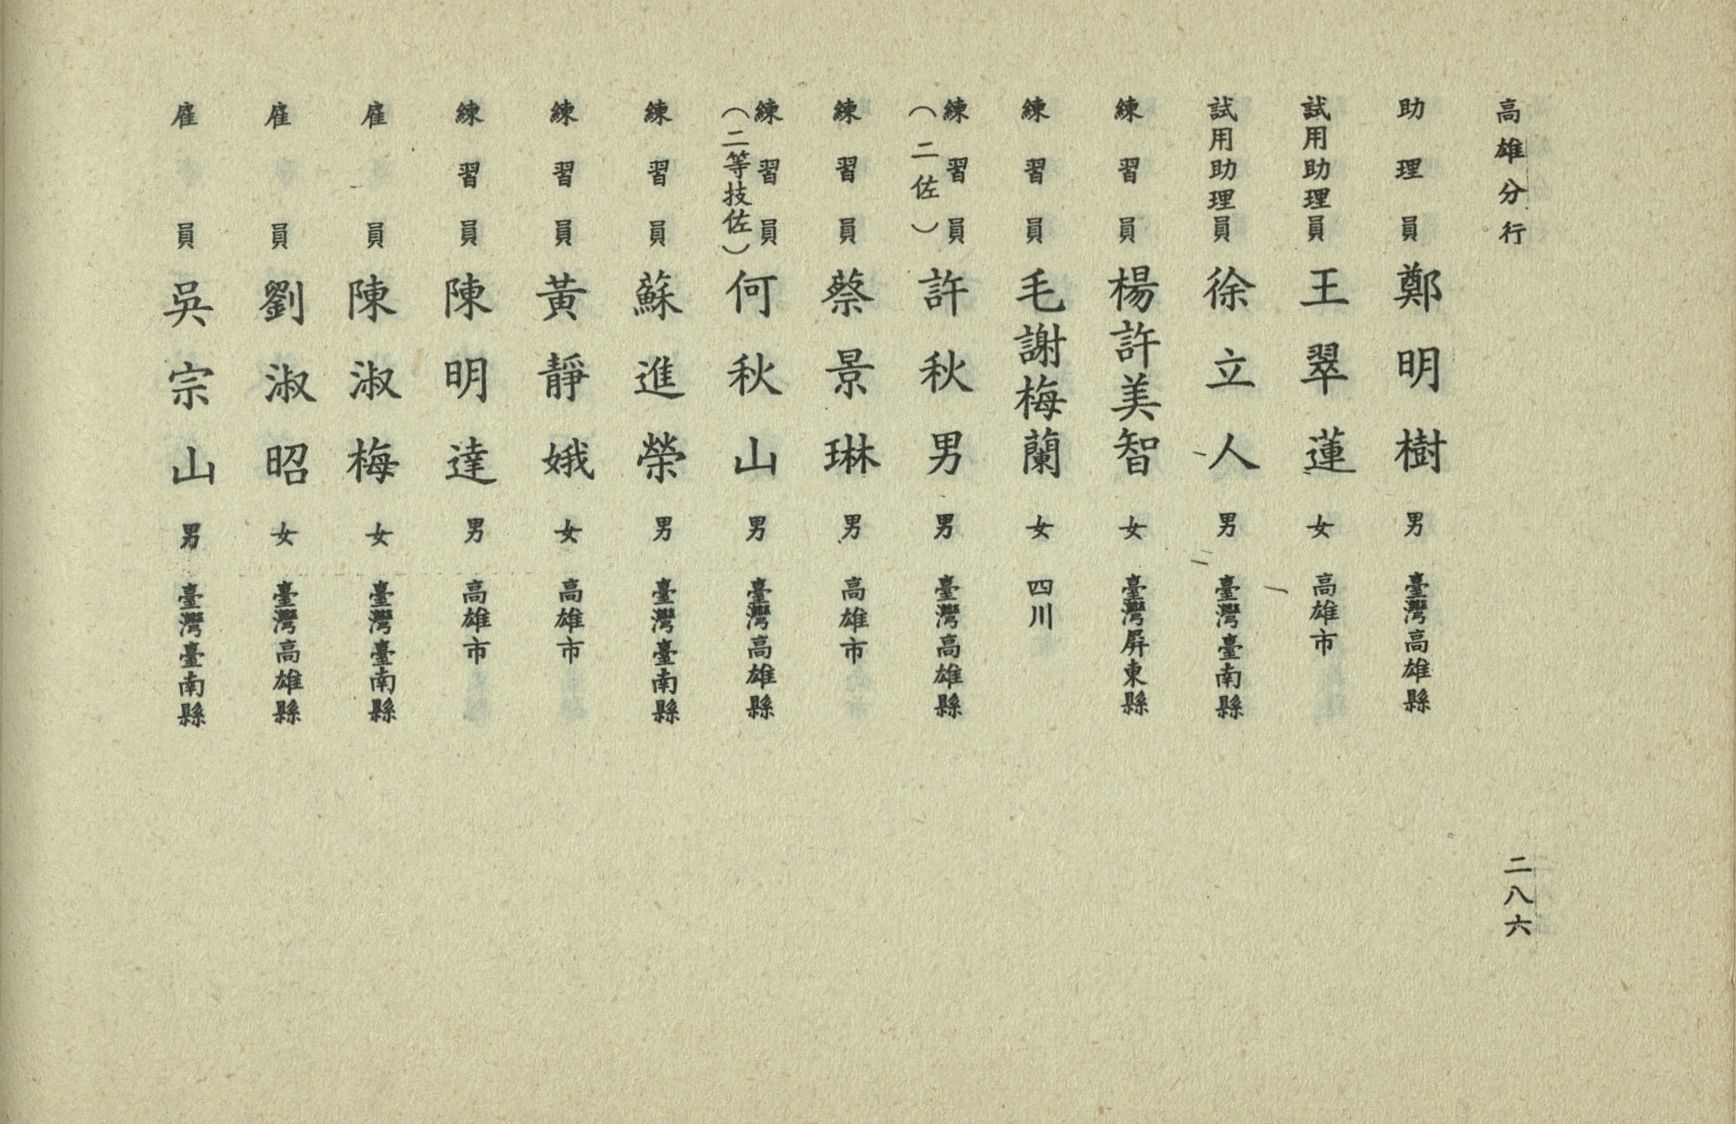 高雄分行
二八六
助理員 鄭明樹 男 臺灣高雄縣
試用助理員 王翠蓮 女 高雄市
試用助理員 徐立人 男 臺灣臺南縣
練習員 楊許美智 女 臺灣屛東縣
練習員 毛謝梅蘭 女 四川
練習員(二佐) 許秋男 男 臺灣高雄縣
練習員 蔡景琳 男 高雄市
練習員(二等技佐) 何秋山 男 臺灣高雄縣
練習員 蘇進榮 男 臺灣臺南縣
練習員 黃靜娥 女 高雄市
練習員 陳明達 男 高雄市
雇員 陳淑梅 女 臺灣臺南縣
雇員 劉淑昭 女 臺灣高雄縣
雇員 吳宗山 男 臺灣臺南縣